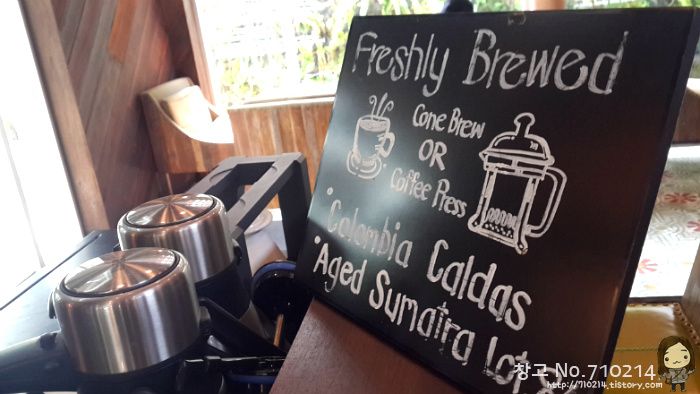 Freshly Brewed
Cone Brew
OR
Coffee Press
•Colombia Caldas
•Aged Sumatra Lot
창고 No.710214
http://710214.tistory.com/